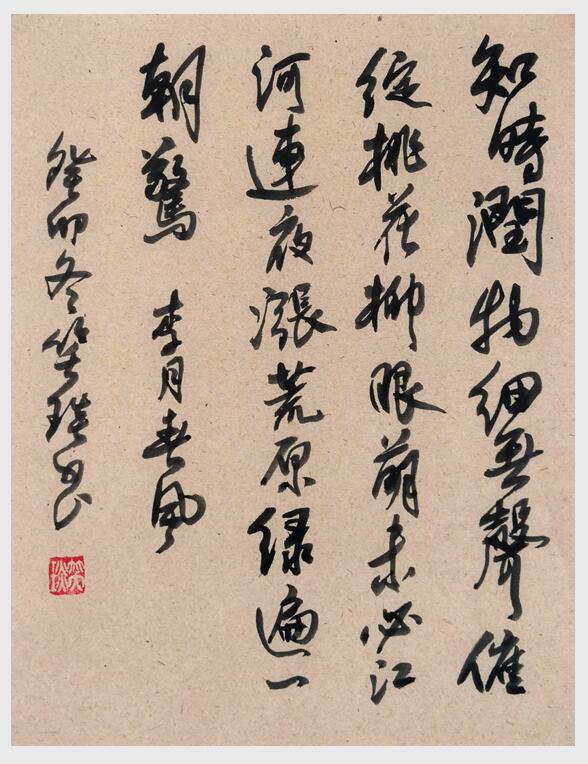 知時潤物細無聲催
綻桃花柳眼萌未必江
河連夜漲荒原绿遍一
朝驚 李月春風
癸卯冬笑琰书